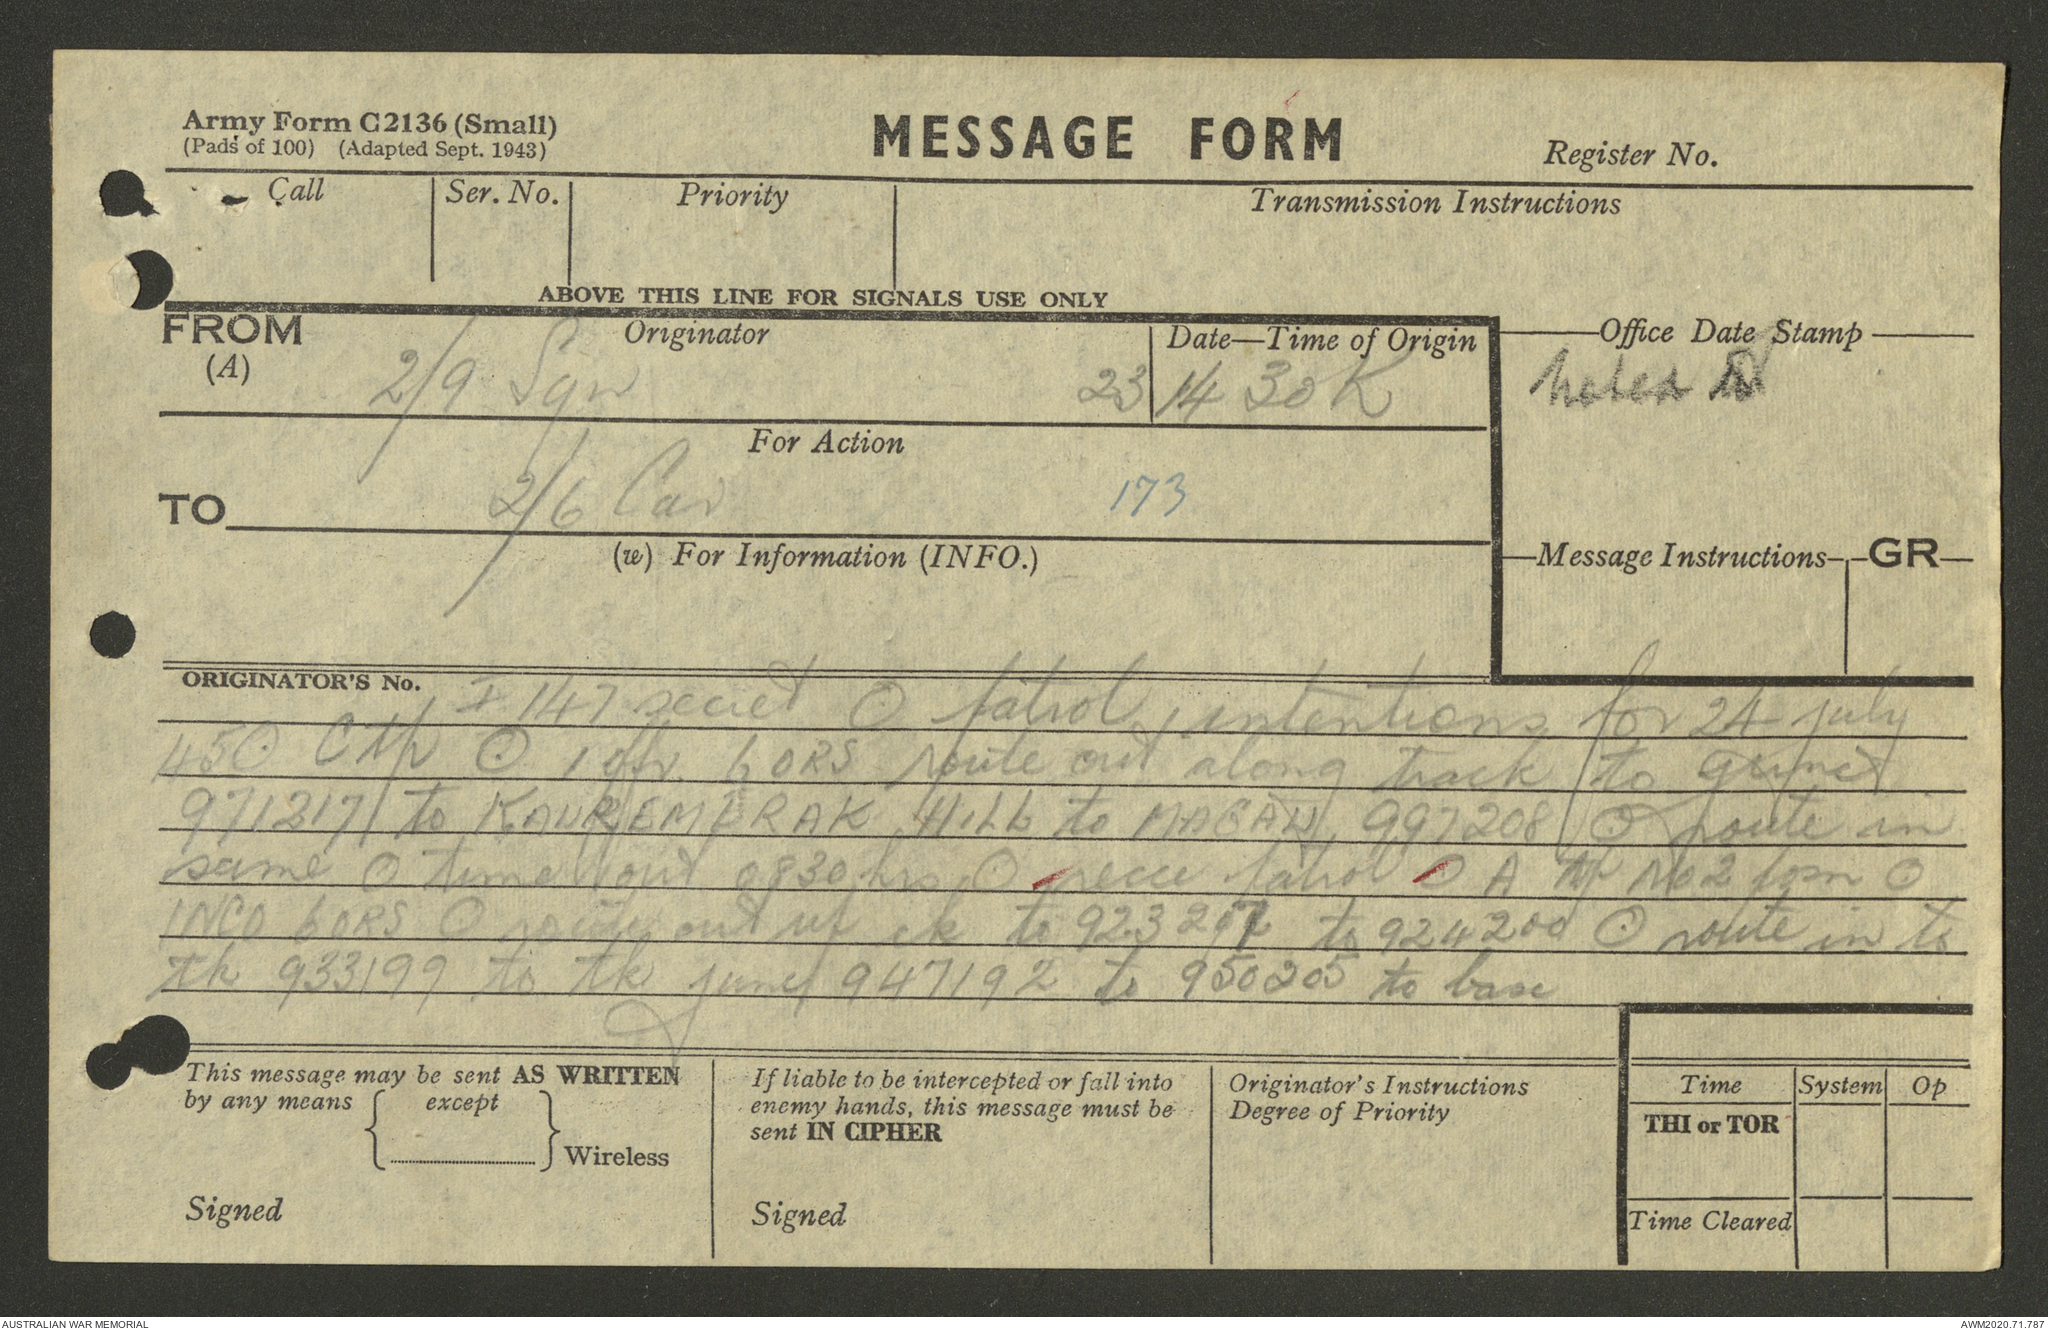 Army Form C2136 (Small)
(Pads of 100) (Adapted Sept. 1943)
MESSAGE FORM
Register No.
Call
Ser. No.
Priority
Transmission Instructions
ABOVE THIS LINE FOR SIGNALS USE ONLY
FROM
(A)
Originator
Date—Time of Origin
Office Date Stamp
2/9 Sqn
23 1430K
For Action
TO
2/6 Cav
173
(w) For Information (INFO.)
Message Instructions
GR
ORIGINATOR'S No.
I 147 secret ⊙ patrol intentions for 24 july
45 ⊙ C tp ⊙ 1 offr. 6 ORS route out along track to
971217 to HILL to 997208 ⊙ route in
same ⊙ time out 0830 hrs ⊙ recce patrol ⊙ A tp No 2 ⊙
1NCO 6 ORS ⊙ route out up ck to 923 to 924200 ⊙ route in to
tk 933199 to tk junc 947192 to 950205 to base
This message may be sent AS WRITTEN
by any means except
Wireless
Signed
If liable to be intercepted or fall into
enemy hands, this message must be
sent IN CIPHER
Signed
Originator's Instructions
Degree of Priority
Time
System
Op
THI or TOR
Time Cleared
AUSTRALIAN WAR MEMORIAL
AWM2020.71.787